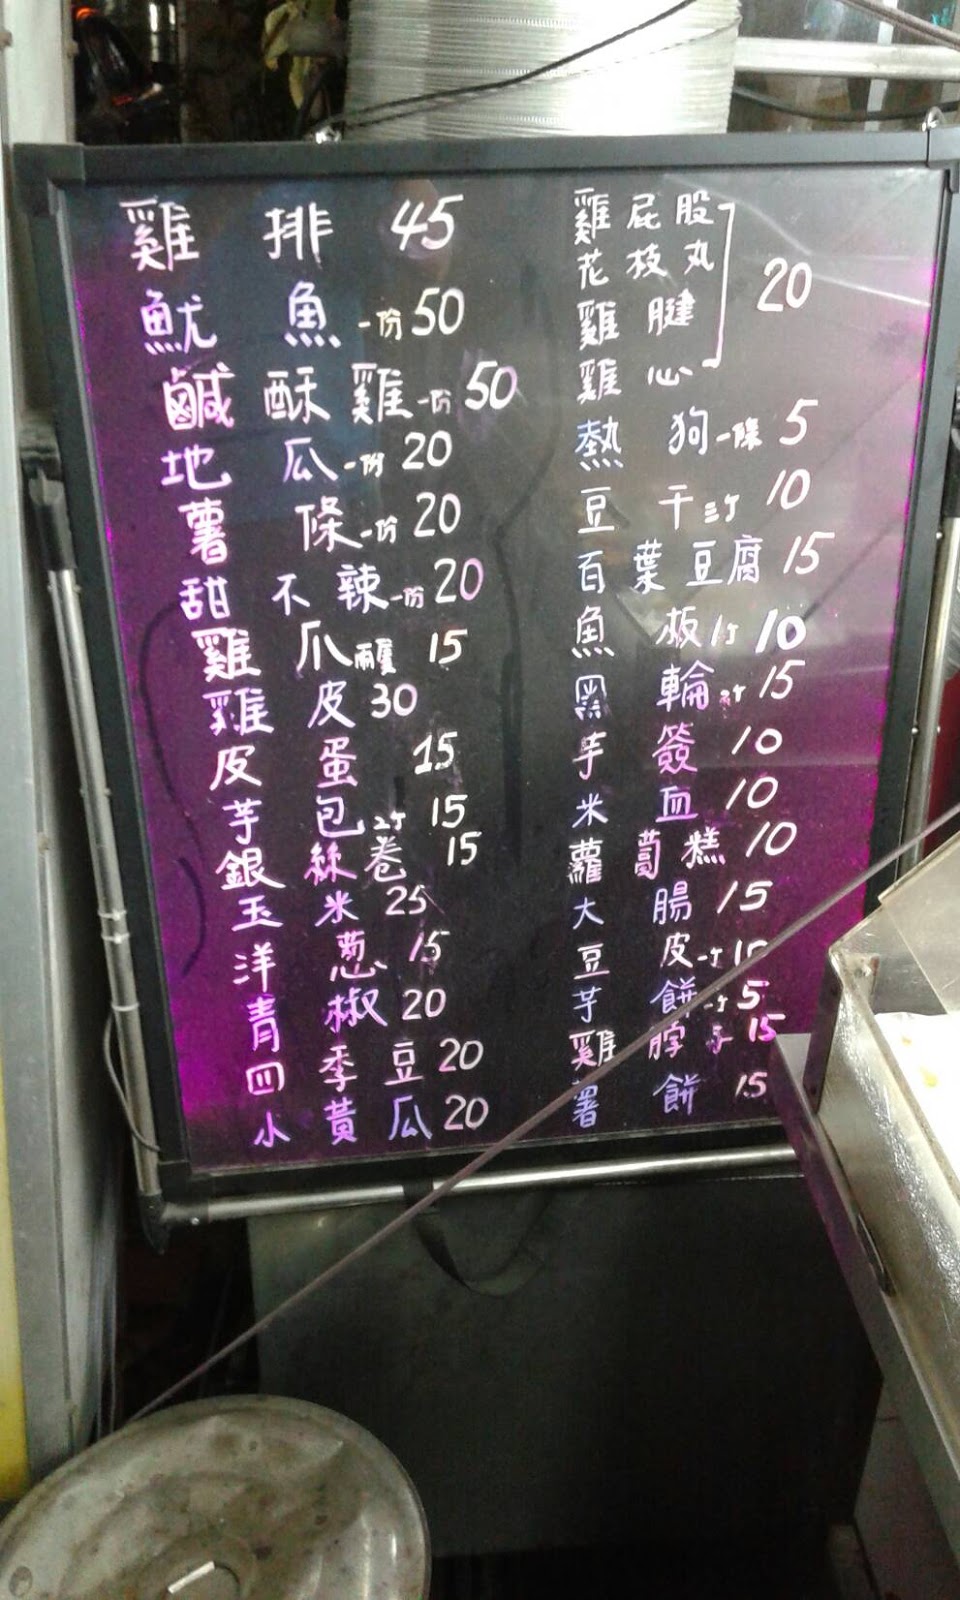 雞排 45
魷魚 一份 50
鹹酥雞 一份 50
地瓜 一份 20
薯條 一份 20
甜不辣 一份 20
雞爪 兩隻 15
雞皮 30
皮蛋 15
芋包 2个 15
銀絲卷 15
玉米 25
洋蔥 15
青椒 20
四季豆 20
小黃瓜 20
雞屁股
花枝丸
雞腱
雞心
20
熱狗 一條 5
豆干 三个 10
百葉豆腐 15
魚板 1个 10
黑輪 15
芋簽 10
米血 10
蘿蔔糕 10
大腸 15
豆皮 一个
芋餅 一个 5
雞脖子 15
薯餅 15